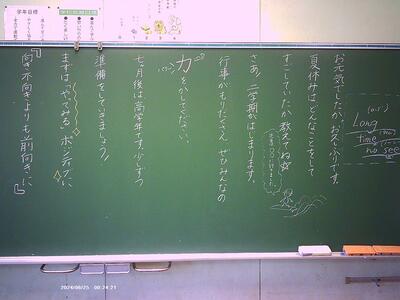 学年目標
お元気でしたか。お久しぶりです。
夏休みはどんなことをして
すごしていたか教えてね
さあ、二学期がはじまります。
行事がもりだくさん ぜひみんなの
力をかしてください。
七ヶ月後は高学年です。少しずつ
準備をしていきましょう!
まずは「やってみる」 ポジティブに
『向き不向きよりも前向きに』
Long
time
no see
2024/08/25 00:24:21